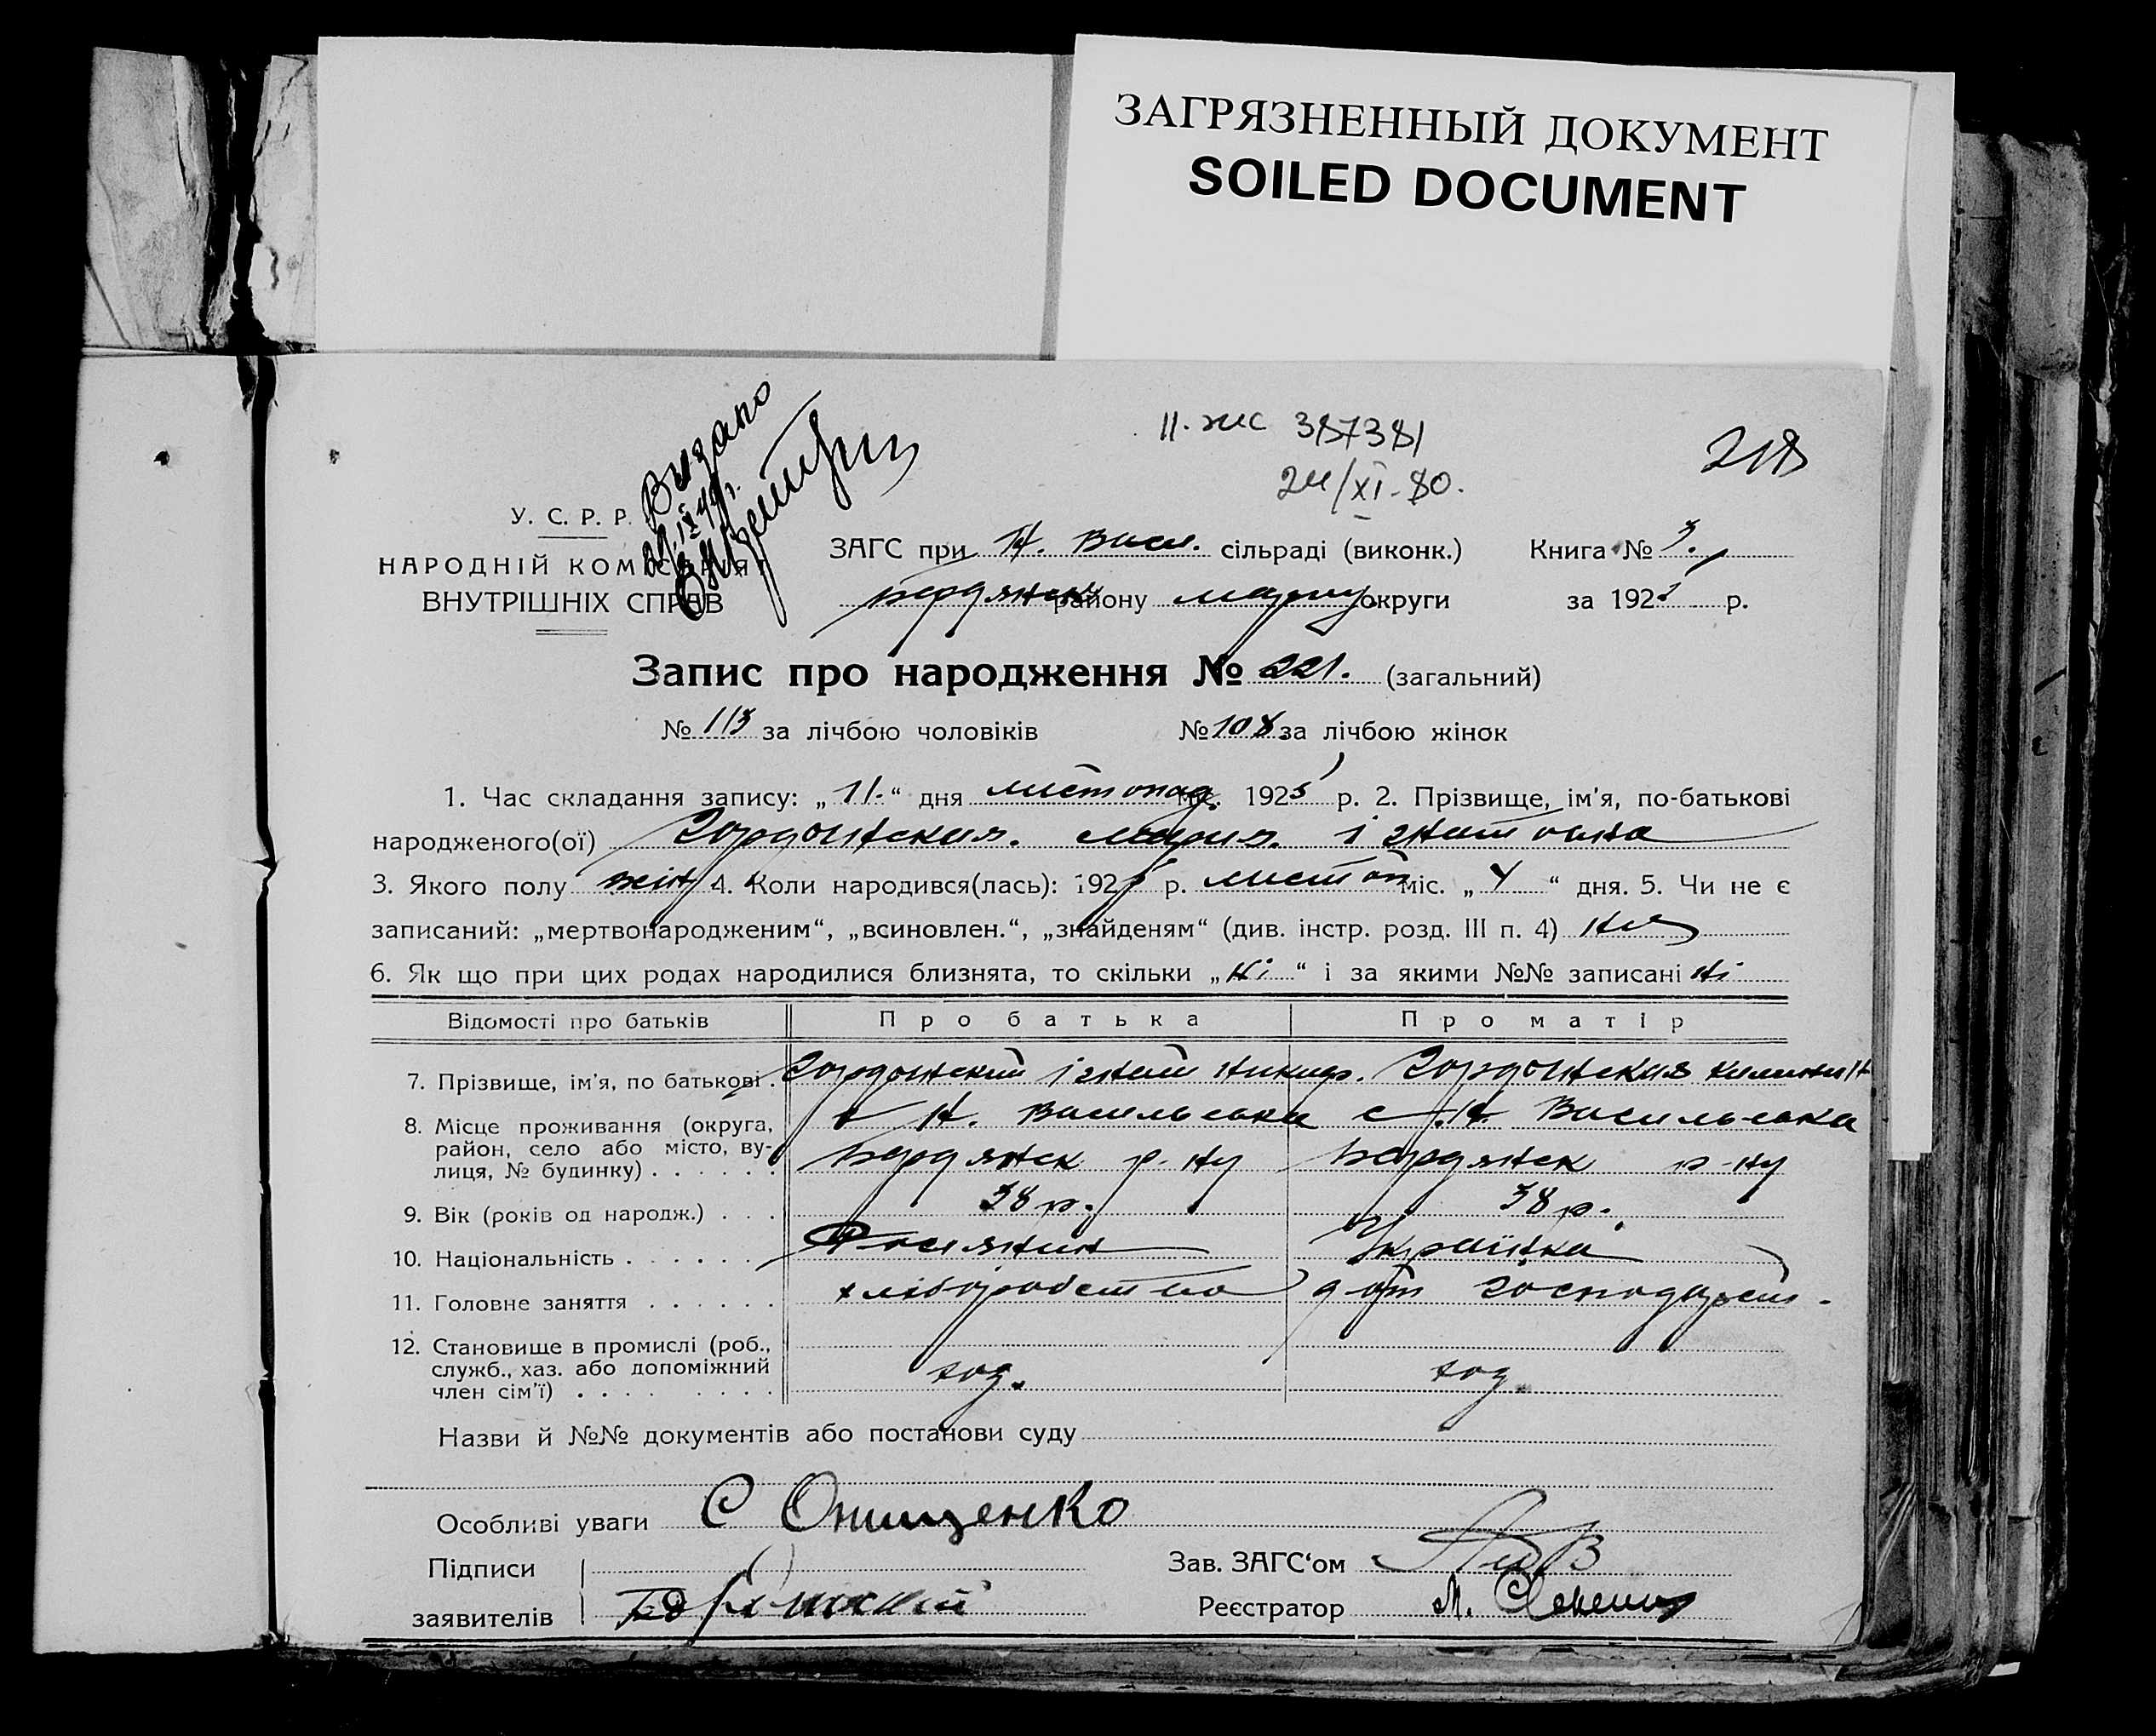 ЗАГРЯЗНЕННЫЙ ДОКУМЕНТ
SOILED DOCUMENT
II-жс 387381
24/XI-80.
218
Видано
У. С. Р. Р.
НАРОДНІЙ КОМІСАРІЯТ
ВНУТРІШНІХ СПРАВ
ЗАГС при Н. Васил. сільраді (виконк.) Книга № 3.
Бердянськ району Маріуп. округи за 1925 р.
Запис про народження № 221. (загальний)
№ 113 за лічбою чоловіків № 108 за лічбою жінок
1. Час складання запису: „11.“ дня листопад. міс. 1925 р. 2. Прізвище, ім’я, по-батькові
народженого(ої) Гордонская. Мария. Ігнатовна
3. Якого полу жін 4. Коли народився(лась): 1925 р. листоп міс. „4“ дня. 5. Чи не є
записаний: „мертвонародженим“, „всиновлен.“, „знайденям“ (див. інстр. розд. III п. 4) ні
6. Як що при цих родах народилися близнята, то скільки „ні“ і за якими №№ записані ні
Відомості про батьків Про батька Про матір
7. Прізвище, ім’я, по батькові . Гордонский Ігнат Никиф. Гордонская
8. Місце проживання (округа, с Н. Васильевка с. Н. Васильевка
район, село або місто, ву-
лиця, № будинку) . . . . . . Бердянск р-ну Бердянск р-ну
9. Вік (років од народж.) . . . 38 р. 38 р.
10. Національність . . . . . . Росиянин Українка
11. Головне заняття . . . . . . хліборобство дом господарст.
12. Становище в промислі (роб.,
служб., хаз. або допоміжний хоз. хоз.
член сім’ї) . . . . . . . .
Назви й №№ документів або постанови суду
Особливі уваги С Онищенко
Підписи Зав. ЗАГС‘ом
заявителів Реєстратор М.